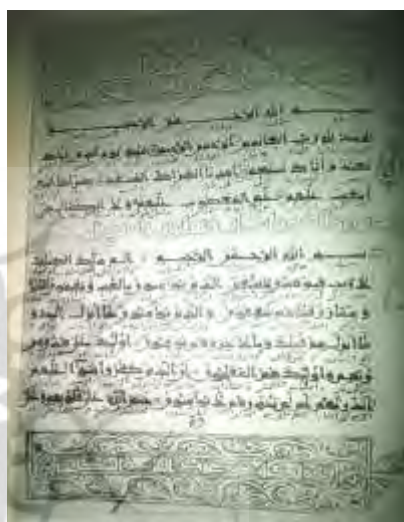 بسم الله الرحمن الرحيم
الحمد لله رب العالمين الرحمن الرحيم ملك يوم الدين إياك
نعبد وإياك نستعين اهدنا الصراط المستقيم صراط الذين
أنعمت عليهم غير المغضوب عليهم ولا الضالين
بسم الله الرحمن الرحيم الم ذلك الكتب
لا ريب فيه هدى للمتقين الذين يؤمنون بالغيب ويقيمون الصلوة
ومما رزقنهم ينفقون والذين يؤمنون بما أنزل إليك و
ما أنزل من قبلك وبالآخرة هم يوقنون أولئك على هدى من
ربهم وأولئك هم المفلحون إن الذين كفروا سواء عليهم
ءأنذرتهم أم لم تنذرهم لا يؤمنون ختم الله على قلوبهم وعلى